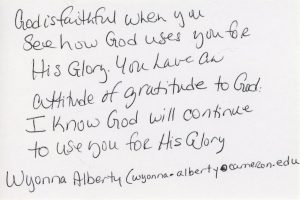 God is faithful when you
see how God uses you for
His Glory. You have an
attitude of gratitude to God.
I know God will continue
to use you for His Glory
Wyonna Alberty (wyonna.alberty@cameron.edu